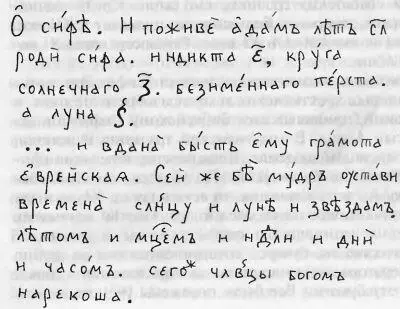 Ѽ си́ѳѣ. И поживе̑ а̑да́мъ лѣтъ с҃л
роди си́ѳа. индикта е҃, кру́га
солнечнаго з҃. безиме́ннаго пе́рста.
а луна ѕ҃.
... и вдана̀ бы́сть е̑му̀ гра́мота
е҆врейская. Сей же бѣ̀ му́дръ оуста́ви
времена̀ сл҃нцу и лунѣ̀ и звѣ̀здамъ.
лѣтом̾ и мц҃емъ и нд҃ли и дни̑
и часо́м. сего́ж чл҃вцы богом
нарекоша.